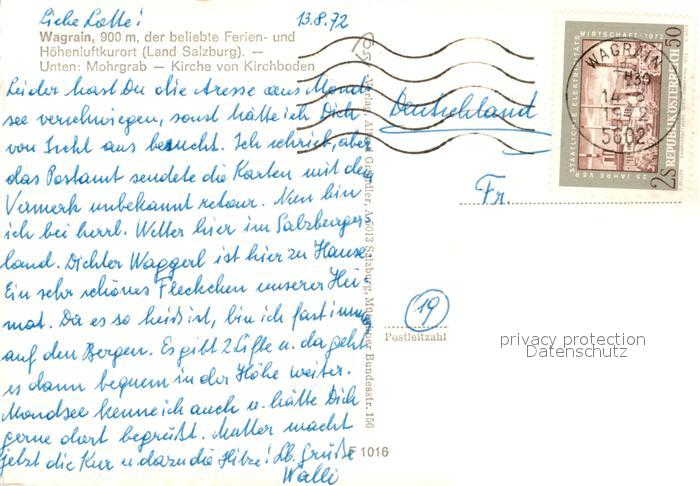 Liebe Lotte!
13.8.72
Wagrain, 900 m, der beliebte Ferien- und
Höhenluftkurort (Land Salzburg). —
Unten: Mohrgrab — Kirche von Kirchboden
Leider hast Du die Adresse aus Mond-
see verschwiegen, sonst hätte ich Dich
von Ischl aus besucht. Ich schrieb, aber
das Postamt sendete die Karten mit dem
Vermerk unbekannt retour. Nun bin
ich bei herrl. Wetter hier im Salzburger-
land. Dichter Waggerl ist hier zu Hause
Ein sehr schönes Fleckchen unserer Hei-
mat. Da es so heiß ist, bin ich fast immer
auf den Bergen. Es gibt 2 Lifte u. da geht
es dann bequem in der Höhe weiter.
Mondsee kenne ich auch u. hätte Dich
gerne dort begrüßt. Mutter macht
jetzt die Kur u dazu die Hitze! Lb. Grüße
Walli
Verlag, A-5013 Salzburg, Münchner Bundesstr. 156
F 1016
Deutschland
Fr.
19
Postleitzahl
WAGRAIN
14. 8.
5602
25 JAHRE VERSTAATLICHTE ELEKTRIZITÄTSWIRTSCHAFT · 1972
REPUBLIK ÖSTERREICH
2S 50
privacy protection
Datenschutz